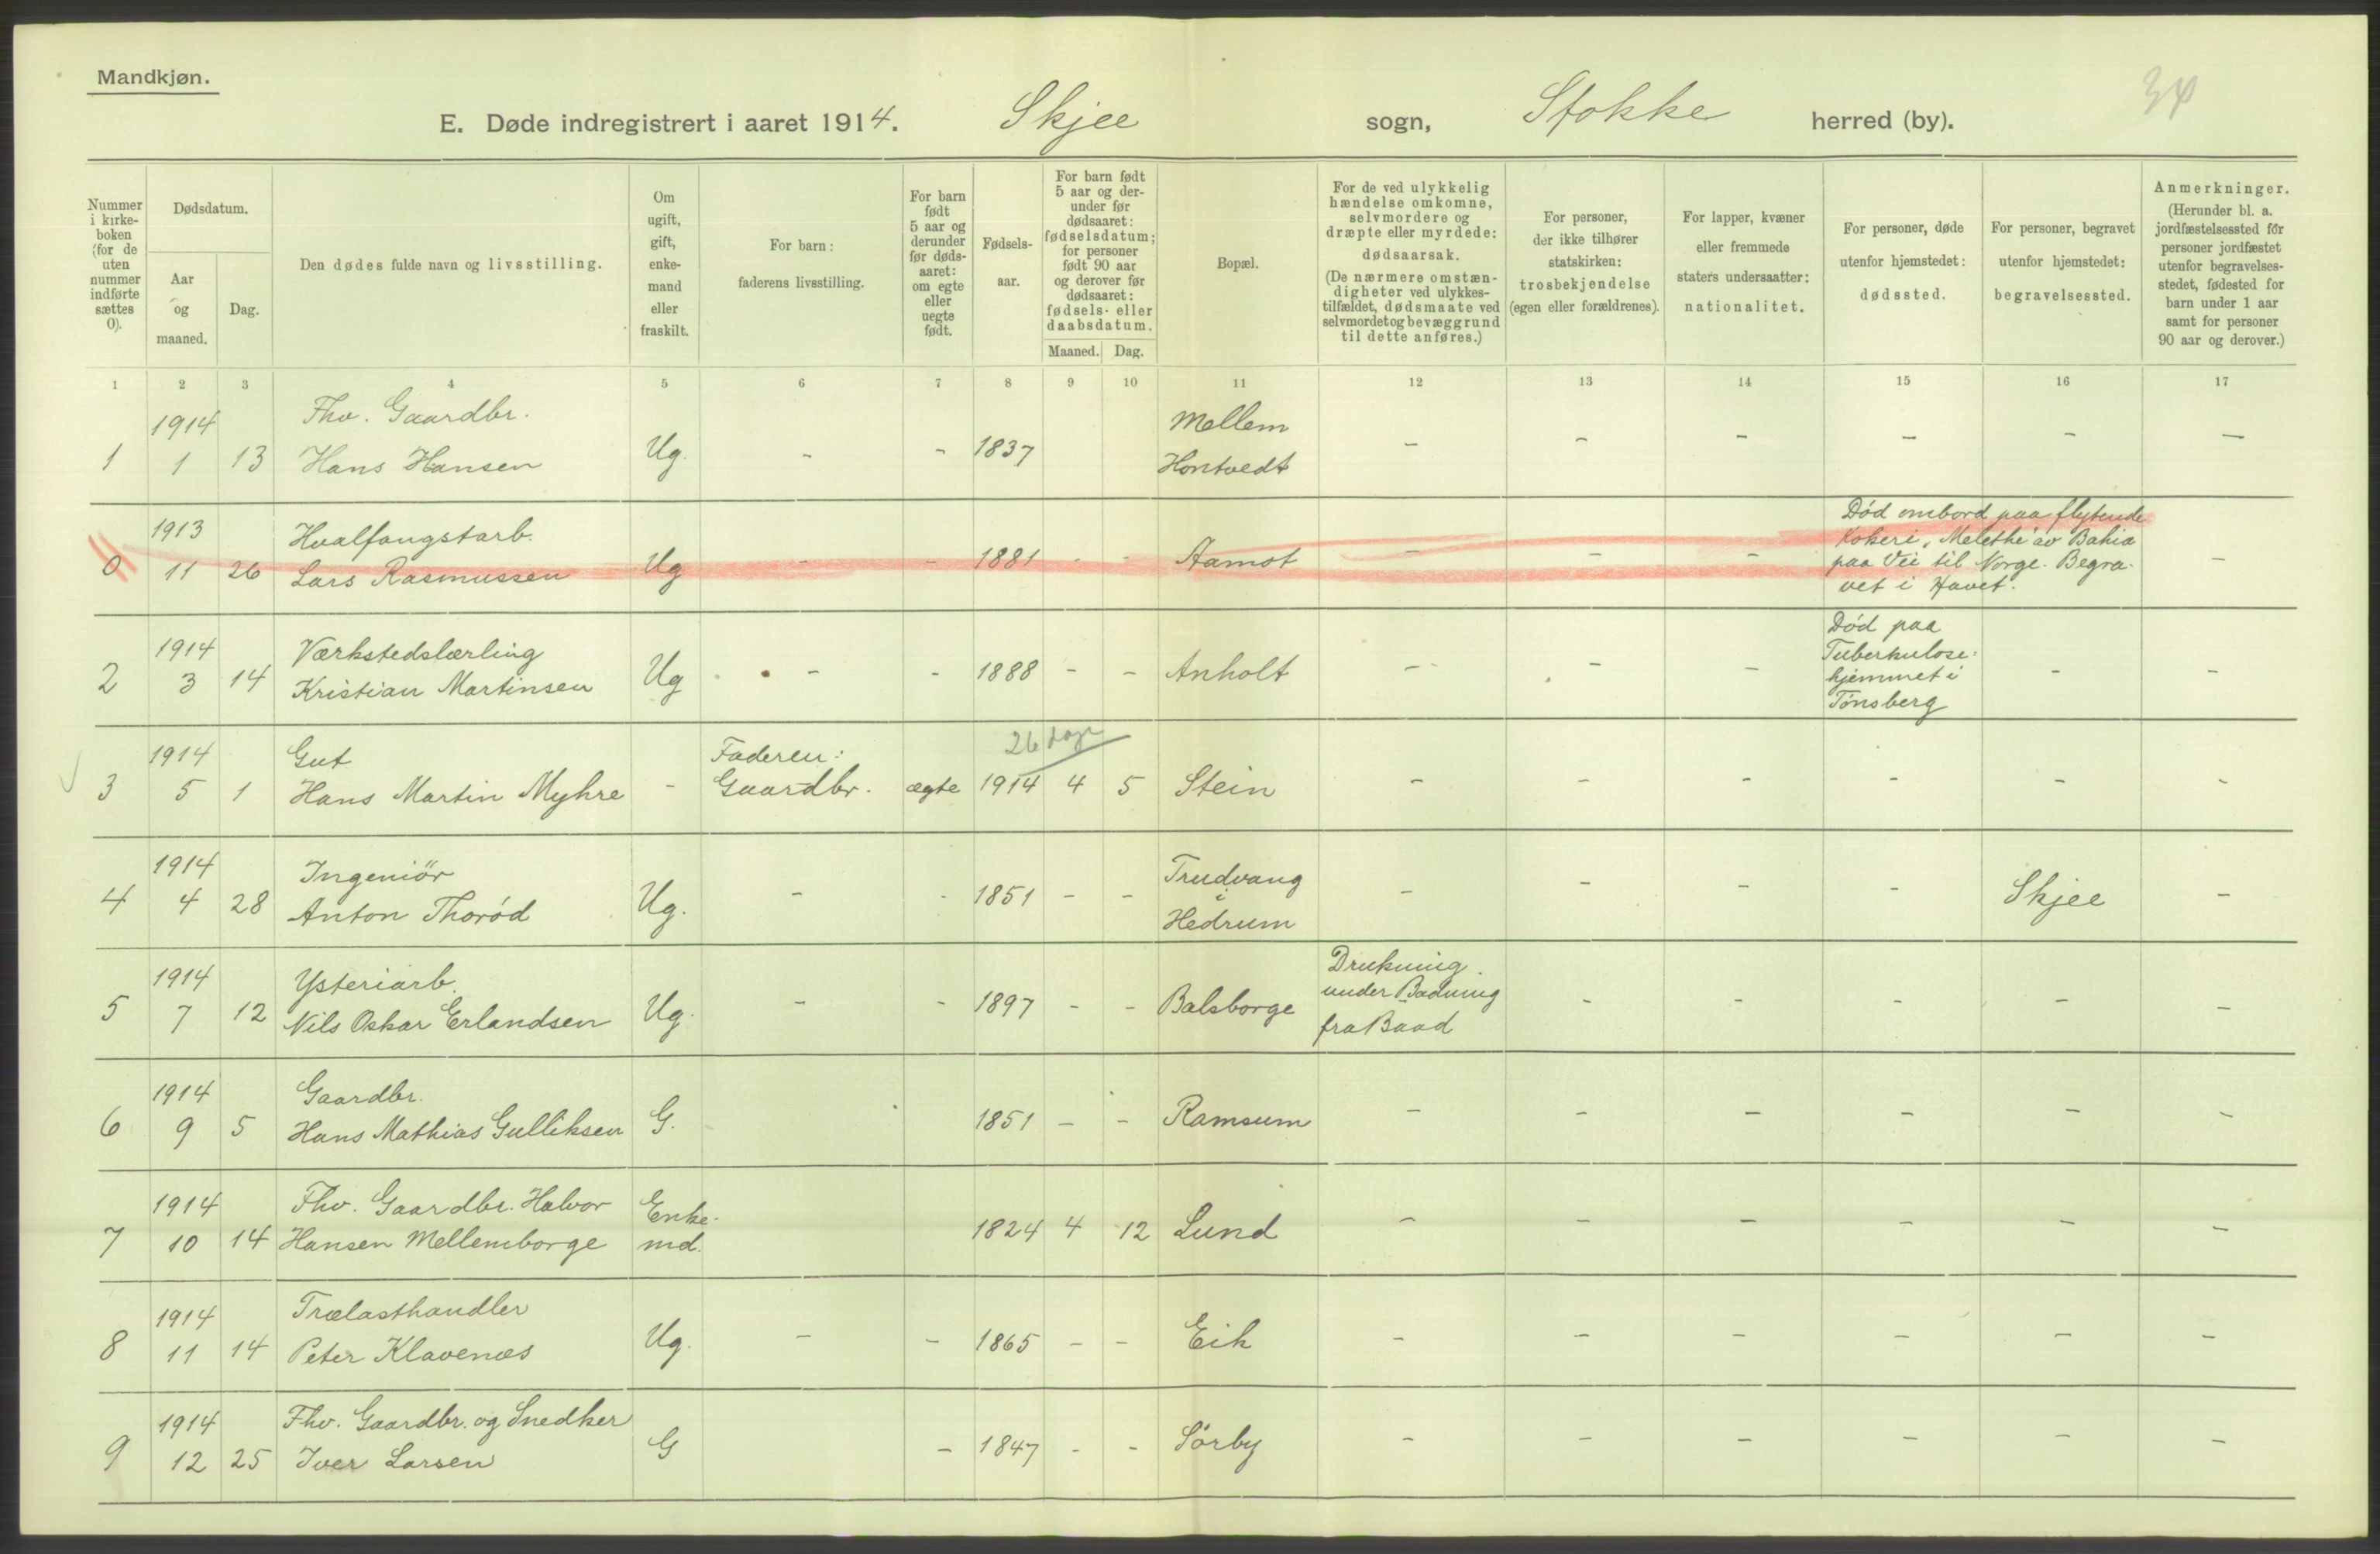 Mandkjøn.
34
E. Døde indregistrert i aaret 1914. Skjee sogn, Stokke herred (by).
Nummer i kirke-boken (for de uten nummer indførte sættes 0).
Dødsdatum.
Aar og maaned.
Dag.
Den dødes fulde navn og livsstilling.
Om ugift, gift, enke-mand eller fraskilt.
For barn: faderens livsstilling.
For barn født 5 aar og derunder før døds-aaret: om egte eller uegte født.
Fødsels-aar.
For barn født 5 aar og der-under før dødsaaret: fødselsdatum; for personer født 90 aar og derover før dødsaaret: fødsels- eller daabsdatum.
Maaned. Dag.
Bopæl.
For de ved ulykkelig hændelse omkomne, selvmordere og dræpte eller myrdede: dødsaarsak. (De nærmere omstæn-digheter ved ulykkes-tilfældet, dødsmaate ved selvmordet og bevæggrund til dette anføres.)
For personer, der ikke tilhører statskirken: trosbekjendelse (egen eller forældrenes).
For lapper, kvæner eller fremmede staters undersaatter: nationalitet.
For personer, døde utenfor hjemstedet: dødssted.
For personer, begravet utenfor hjemstedet: begravelsessted.
Anmerkninger. (Herunder bl. a. jordfæstelsessted for personer jordfæstet utenfor begravelses-stedet, fødested for barn under 1 aar samt for personer 90 aar og derover.)
1 2 3 4 5 6 7 8 9 10 11 12 13 14 15 16 17
1914 Fhv. Gaardbr. Mellem
1 1 13 Hans Hansen Ug. - - 1837 Hontvedt - - - - - -
1913 Hvalfangstarb.
0 11 26 Lars Rasmussen Ug - - 1881 - - Aamot - - -
Död ombord paa flytende
Kokeri, Melethe av Bahia
paa Vei til Norge. Begra-
vet i Havet. -
1914 Værkstedslærling
2 3 14 Kristian Martinsen Ug - - 1888 - - Anholt - - -
Död paa
Tuberkulose-
hjemmet i
Tönsberg - -
1914 Gut Faderen: 26 dage
3 5 1 Hans Martin Myhre - Gaardbr. ægte 1914 4 5 Stein - - - - - -
1914 Ingeniör Trudvang
i
4 4 28 Anton Thoröd Ug. - - 1851 - - Hedrum - - - - Skjee -
1914 Ysteriarb. Drukning
under Badning
5 7 12 Nils Oskar Erlandsen Ug. - - 1897 - - Balsborge fra Baad - - - - -
1914 Gaardbr.
6 9 5 Hans Mathias Gulliksen G. 1851 - - Ramsum - - - - - -
1914 Fhv. Gaardbr. Halvor Enke-
7 10 14 Hansen Mellemborge md. 1824 4 12 Lund - - - - - -
1914 Trælasthandler
8 11 14 Peter Klavenæs Ug. - - 1865 - - Eik - - - - - -
1914 Fhv. Gaardbr. og Snedker
9 12 25 Iver Larsen G - 1847 - - Sörby - - - - - -